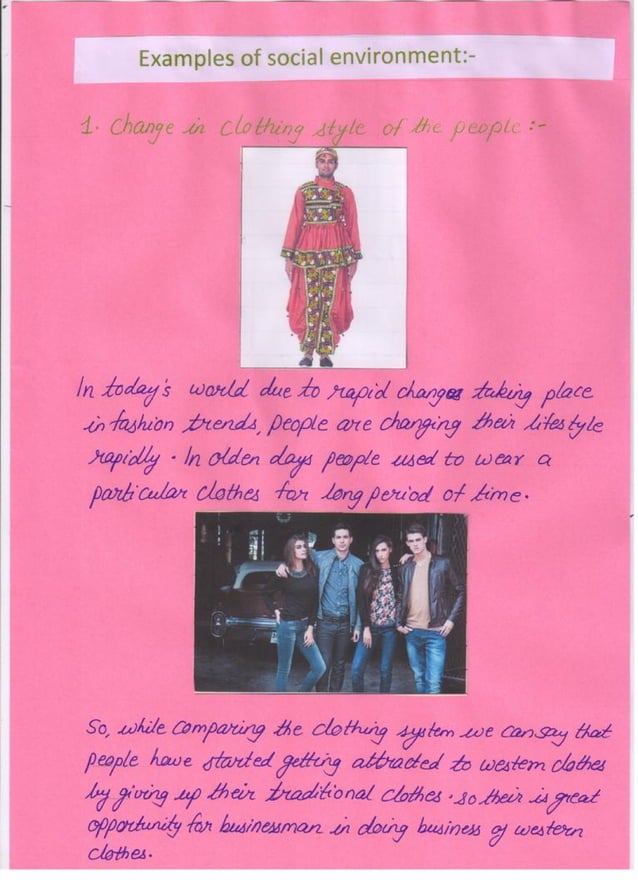 Examples of social environment:-
1. Change in clothing style of the people :-
In today's world due to rapid changes taking place
in fashion trends, people are changing their lifestyle
rapidly. In olden days people used to wear a
particular clothes for long period of time.
So, while comparing the clothing system we can say that
people have started getting attracted to western clothes
by giving up their traditional clothes. so their is great
opportunity for businessman in doing business of western
clothes.